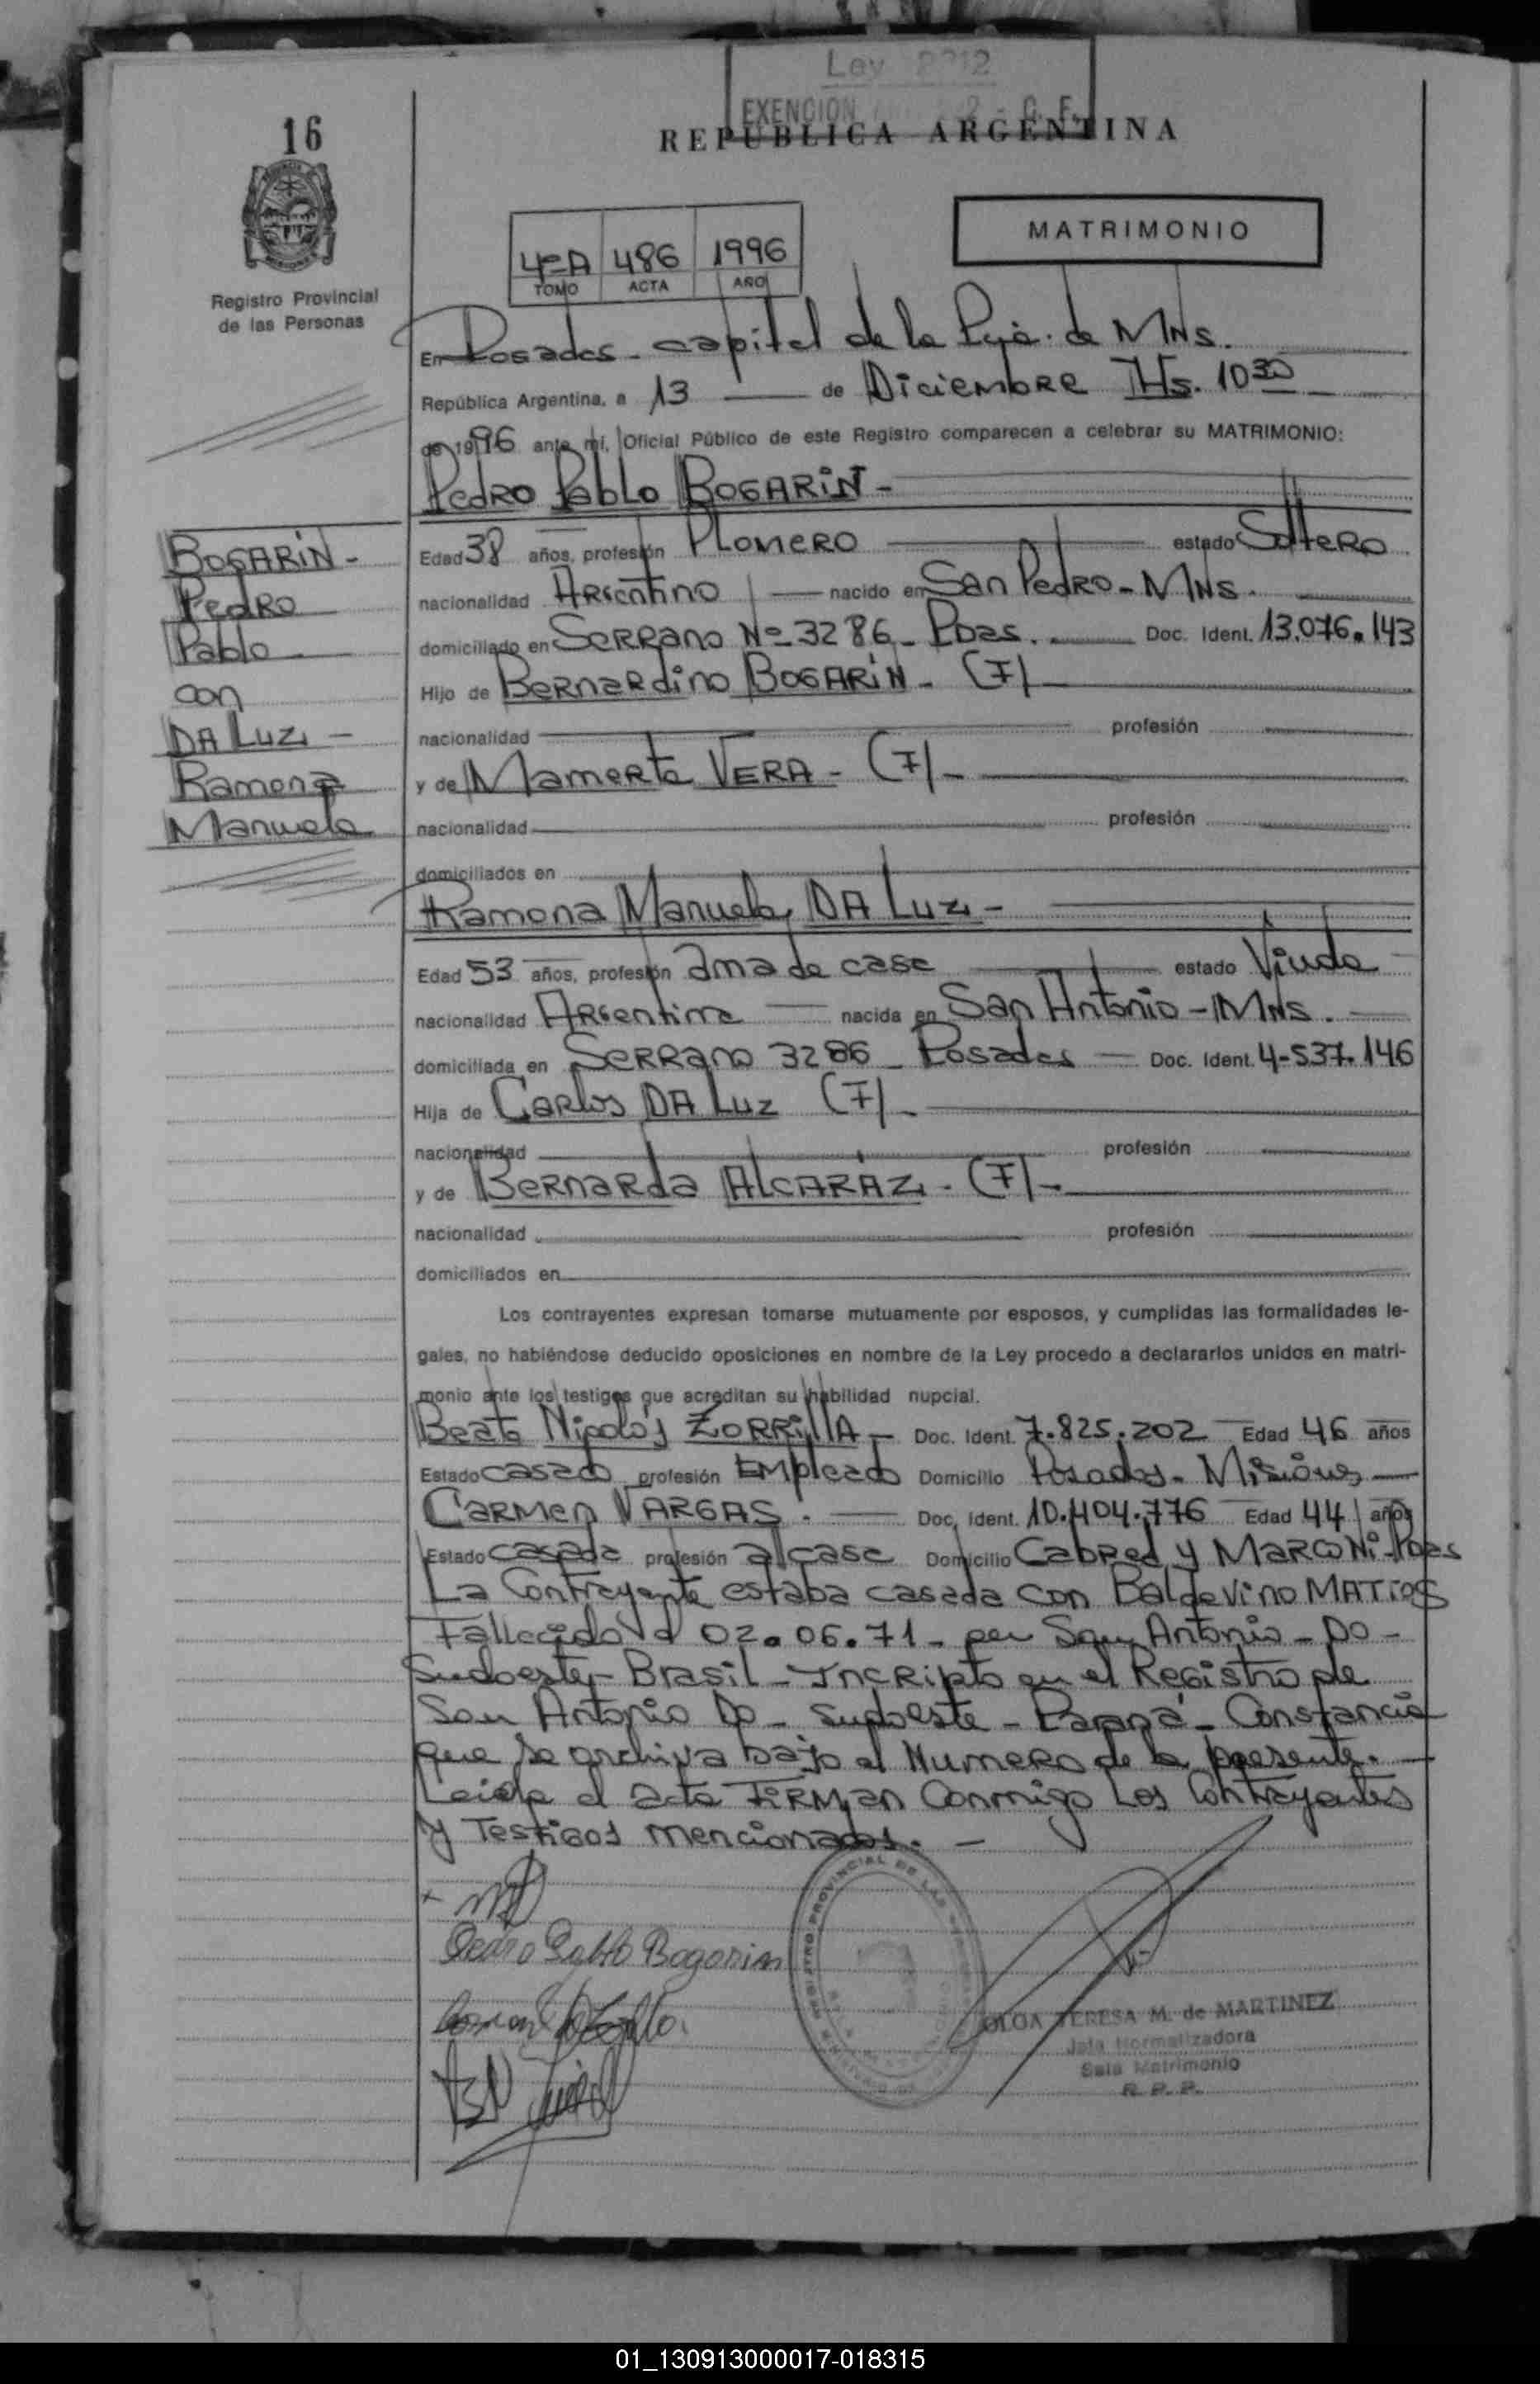 Ley 2212
EXENCION
16
REPUBLICA ARGENTINA
MATRIMONIO
4º-A 486 1996
TOMO ACTA AÑO
Registro Provincial
de las Personas
En Posadas - capital de la Pcia. de MNS.
República Argentina, a 13 de Diciembre Hs. 10 30
de 1996 ante mí, Oficial Público de este Registro comparecen a celebrar su MATRIMONIO:
Pedro Pablo BOGARIN -
BOGARIN -
Pedro
Pablo
con
DA LUZ -
Ramona
Manuela
Edad 38 años, profesión Plomero estado Soltero
nacionalidad Argentino nacido en San Pedro - MNS.
domiciliado en Serrano Nº 3286 - Pdas. Doc. Ident. 13.076.143
Hijo de Bernardino BOGARIN - (F) -
nacionalidad profesión
y de Mamerta VERA - (F) -
nacionalidad profesión
domiciliados en
Ramona Manuela DA LUZ -
Edad 53 años, profesión ama de casa estado Viuda
nacionalidad Argentina nacida en San Antonio - MNS.
domiciliada en Serrano 3286 - Posadas Doc. Ident. 4-537.146
Hija de Carlos DA LUZ (F) -
nacionalidad profesión
y de Bernarda ALCARAZ - (F) -
nacionalidad profesión
domiciliados en
Los contrayentes expresan tomarse mutuamente por esposos, y cumplidas las formalidades le-
gales, no habiéndose deducido oposiciones en nombre de la Ley procedo a declararlos unidos en matri-
monio ante los testigos que acreditan su habilidad nupcial.
Beato Nicolás ZORRILLA - Doc. Ident. 7.825.202 Edad 46 años
Estado casado profesión Empleado Domicilio Posadas - Misiones
Carmen VARGAS. Doc. Ident. 10.404.776 Edad 44 años
Estado casada profesión a/casa Domicilio Cabred y Marconi - Pdas
La Contrayente estaba casada con Baldevino MATIOS
Fallecido el 02.06.71 - en San Antonio - DO -
Sudoeste - Brasil - Incripto en el Registro de
San Antonio Do - Sudoeste - Paraná - Constancia
que se archiva bajo el Numero de la presente.
Leida el acta FIRMAN Conmigo Los Contrayentes
y Testigos mencionados. -
Pedro Pablo Bogarin
OLGA TERESA M. de MARTINEZ
Jefa Normalizadora
Sala Matrimonio
R. P. P.
01_130913000017-018315